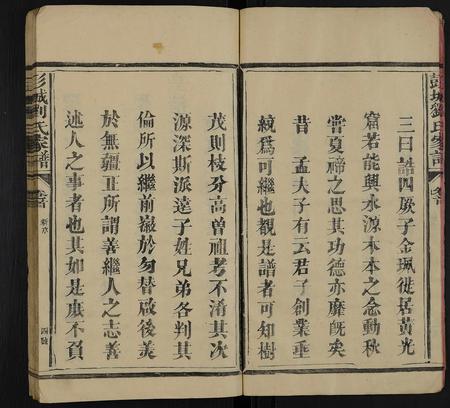 彭城劉氏家譜
三曰誥四厥子金珮徙居黄光
窩若能興水源木本之念動秋
嘗夏禘之思其功德亦靡旣矣
昔 孟夫子有云君子創業垂
統爲可繼也觀是譜者可知樹
茂則枝分高曽祖考不淆其次
源深斯派遠子姓兄弟各判其
倫所以繼前巖於勿替啟後美
於無疆正所謂善繼人之志善
述人之事者也其如是庶不負
彭城劉氏家譜
卷首
新序
四